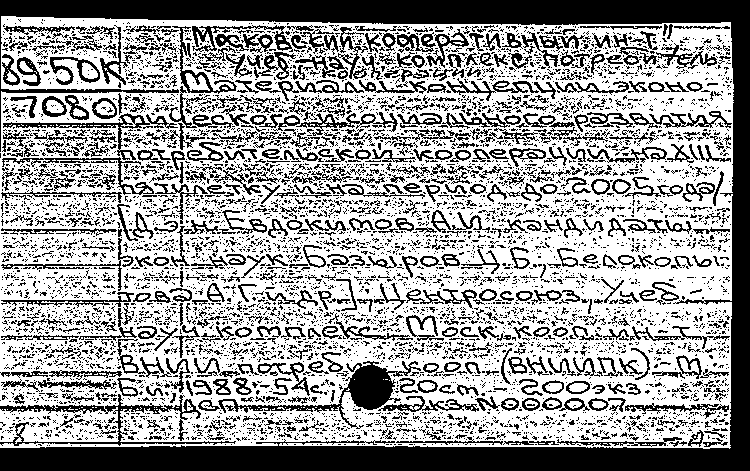 "Московский кооперативный ин-т"
Учеб.-науч. комплекс потребитель-
ской кооперации
89-50К
7080
Материалы концепции эконо-
мического и социального развития
потребительской кооперации на XIII
пятилетку и на период до 2005 года/
[Д.э.н. Евдокимов А.И., кандидаты
экон. наук Базыров Ц.Б., Белокопы-
това А.Г. и др.]; Центросоюз, Учеб.-
науч. комплекс "Моск. кооп. ин-т",
ВНИИ потреб. кооп. (ВНИИПК). - М.:
Б.и., 1988. - 54с.; 20см. - 200экз.
ДСП Экз. N000007
8